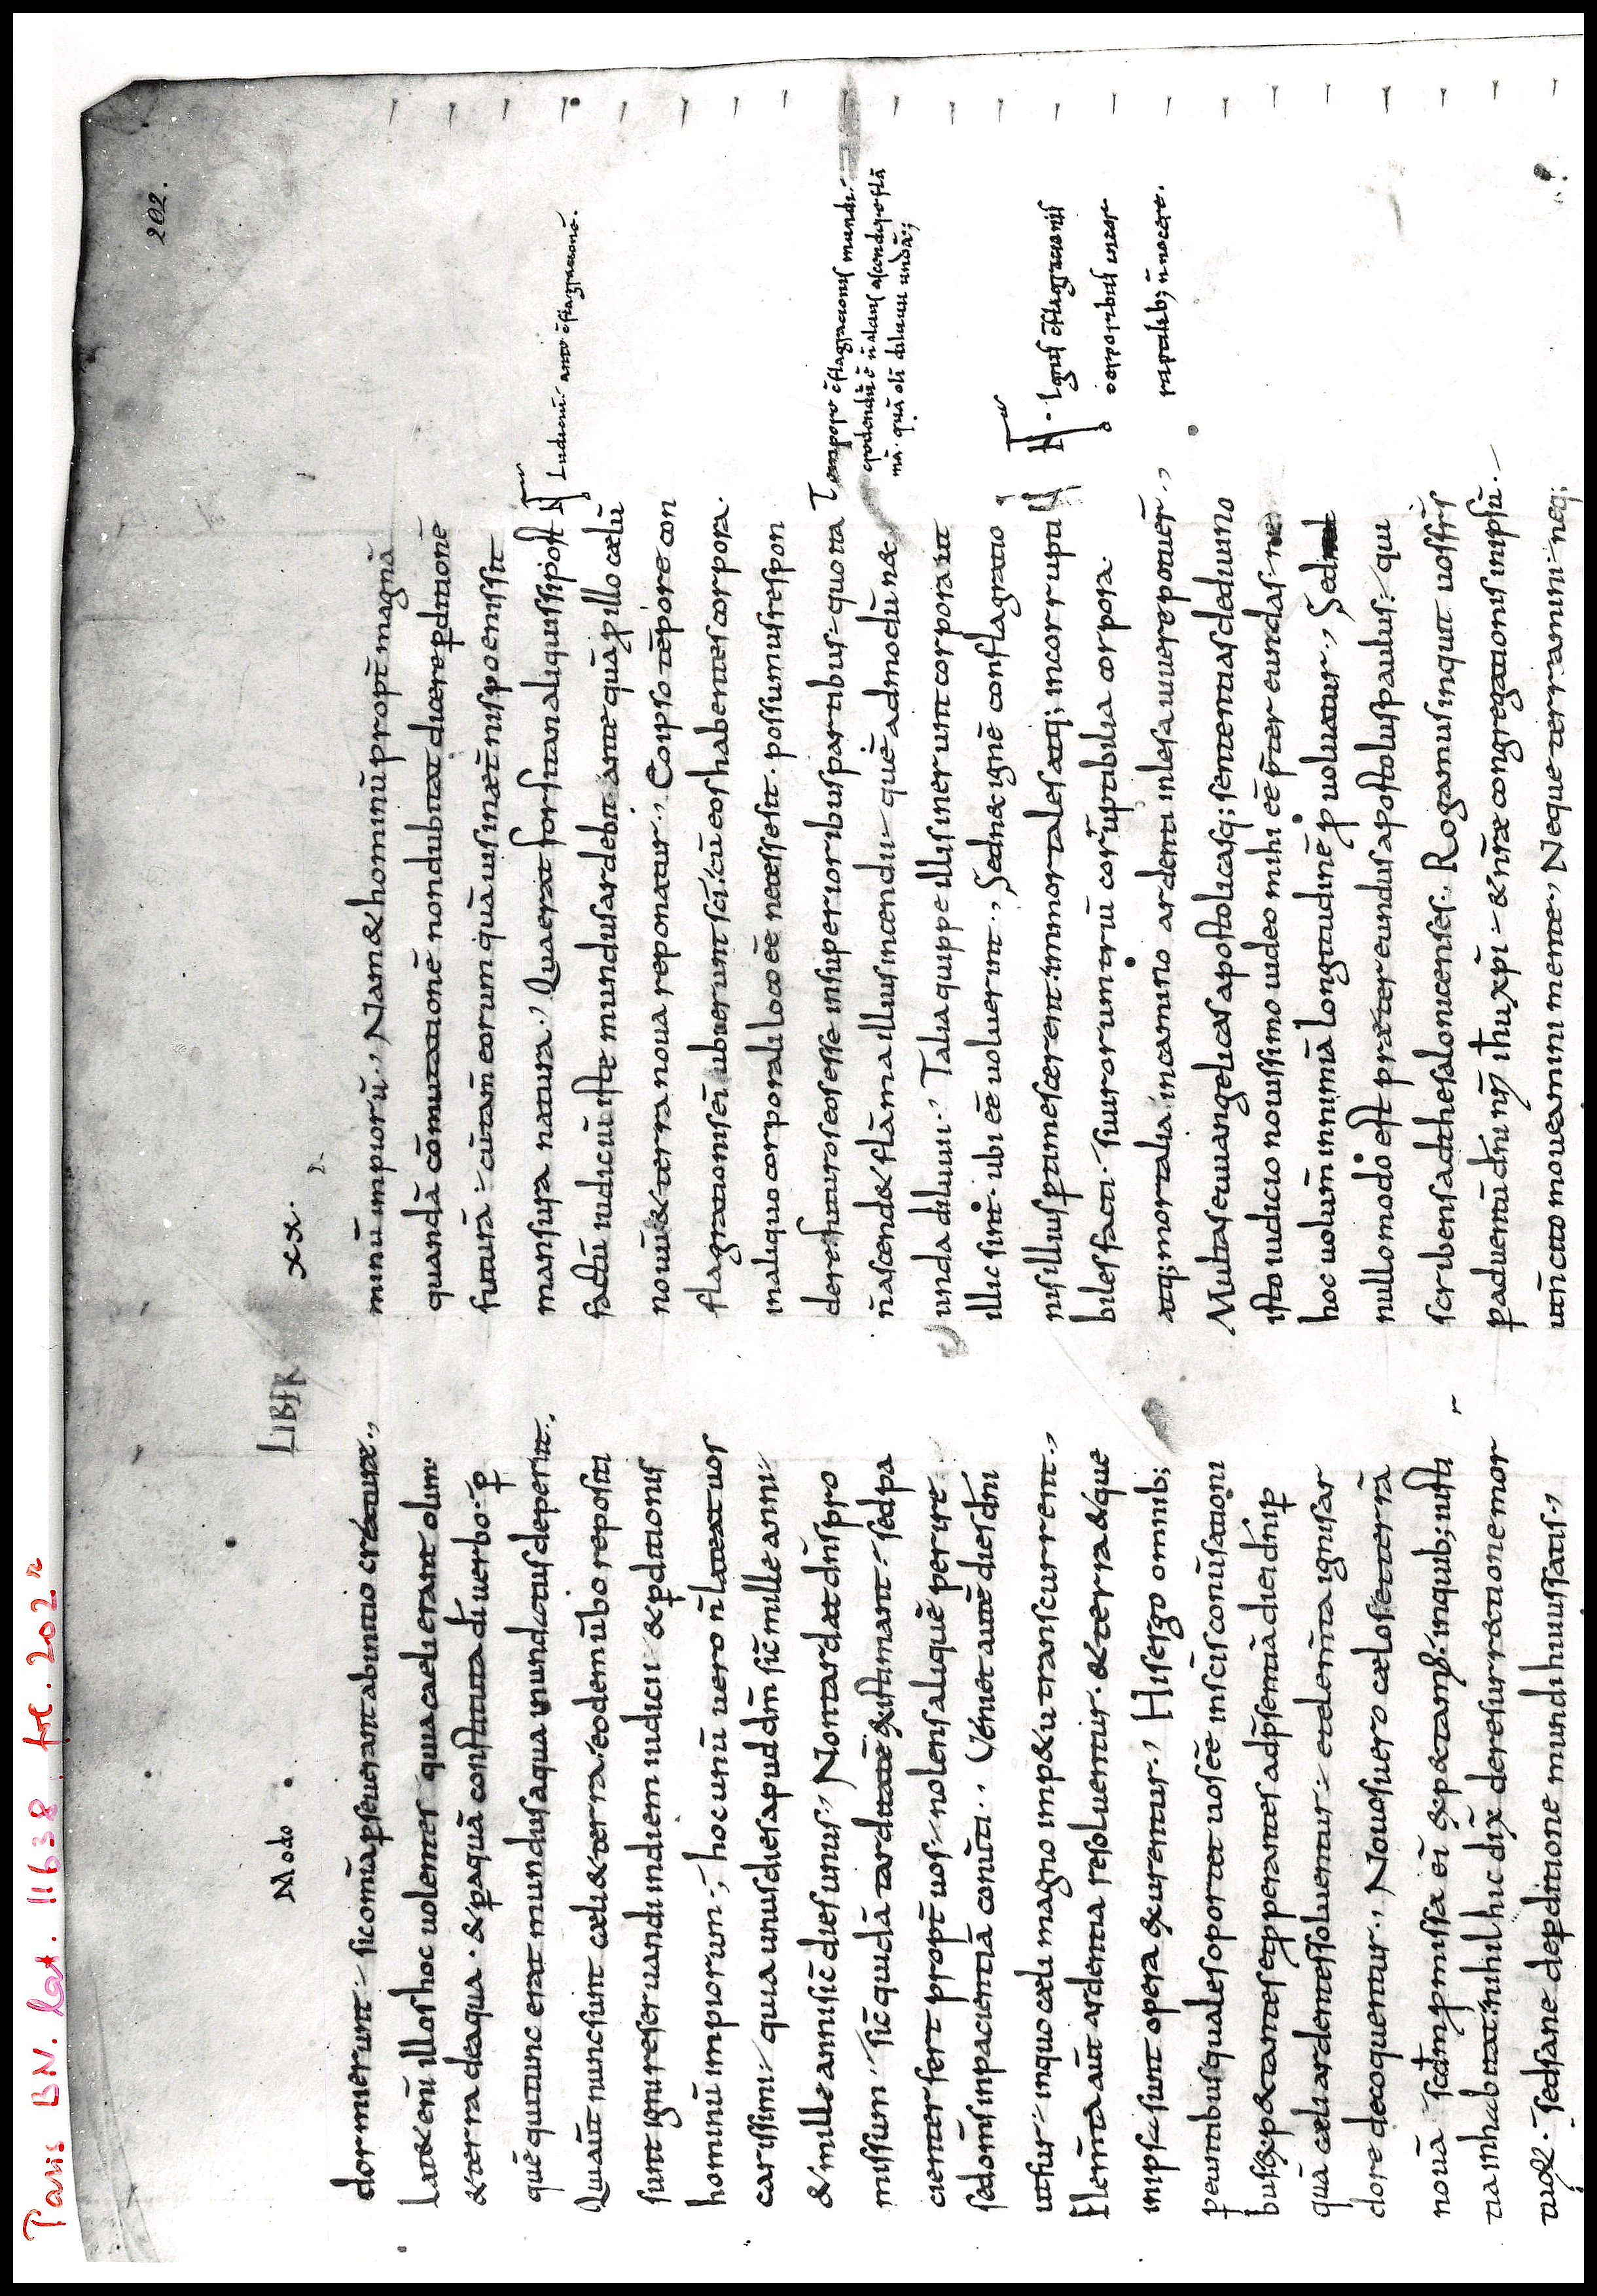 Paris BN. lat. 11638 fol. 202r
202.
Modo
LIBER
XX.
dormierunt sic om̄ia ꝑseuerant abinitio creaturae.,
Lat& eni᷄ illos hoc uolentes quia caeli erant olim
& terra deaqua · & ꝑ aquā constituta dī uerbo · ꝑ
quę̄ qui tunc erat mundus aqua inundatus deperiit.,
Qui aūt nunc sunt caeli & terra eodem uerbo repositi
sunt igni reseruandi indiem iudicii & ꝑditionis
hominū impiorum ; hoc unū uero n̄ lateat uos
carissimi quia unus dies apud dm̄ sic̄ mille anni
& mille anni sic̄ dies unus., Non tardat dn̄s pro
missum sic̄ quidā tarditatē existimant sed pa
cienter fert propt̄ uos nolens aliquē perire
sed om̄s inpacientiā conu̅ti., Veniet autē dies dn̄i
ut fur inquo caeli magno imp&u transcurrent.,
Elem̄ta aūt ardentia resoluentur & terra & que
inipsa sunt opera exurentur., His ergo omnib;
pereuntibus quales oportet uos eē̄ in sc̄is conu̅sationi
bus expectantes & pperantes ad p̄sentiā diei dn̄i ꝑ
quā caeli ardentes soluentur et elem̄ta ignis ar
dore decoquentur., Nouos uero caelos et terrā
nouā scd̄m ꝓmissa ei᷄ expectam; inquib; iusti
tia inhabitat nihil hic dix̄ de resurr&tione mor
tuoꝝ · sed sane de ꝑditione mundi huius satis.,
minū impiorū., Nam & hominū propt̄ magnā
quandā cōmutationē non dubitat dicere ꝑditionē
futurā cū tam̄ eorum quāuis in aet̄nis poenis sit
mansura natura., Quaerat forsitan aliquis si post
factū iudiciū iste mundus ardebit antequā ꝑ illo caelū
nouū & terra noua reponatur., Eo ipso tēpore con
flagrationis ei᷄ ubi erunt sc̄i cū eos habentes corpora
inaliquo corporali loco eē̄ necesse sit · possumus respon
dere futuros eos esse insuperioribus partibus quo ita
n̄ ascend& flāma illius incendii quē admodū n&
unda diluuii., Talia quippe illis inerunt corpora ut
illic sint ubi eē̄ uoluerint., Sed n& ignē conflagratio
nis illius ꝑtimescerent · immortales atq; incorrupti
biles facti · si uirorum triū corruptibilia corpora
atq; mortalia incamino ardenti inlesa uiuere potuer̄.,
Multas euuangelicas apostolicasq; sententias de diuino
isto iudicio nouissimo uideo mihi eē̄ p̄ter eundas ne
hoc uolum̄ in nimiā longitudinē ꝓuoluatur., Sed
nullomodo est praeter eundus apostolus paulus qui
scribens ad thesalonicenses · Rogamus inquit uos fr̄s
ꝑ aduentū dn̄i nr̄i ihu xpi & nr̄ae congregationis in ipsū
ut n̄ cito moueamini mente., Neque terramini neq;
Iudiciū ante c̄flagracionē.
Tempore c̄flagracionis mundi
mā quā oli᷄ diluuii unda;
Ignis c̄flagracionis
corporibus inmor
talib; n̄ nocere.